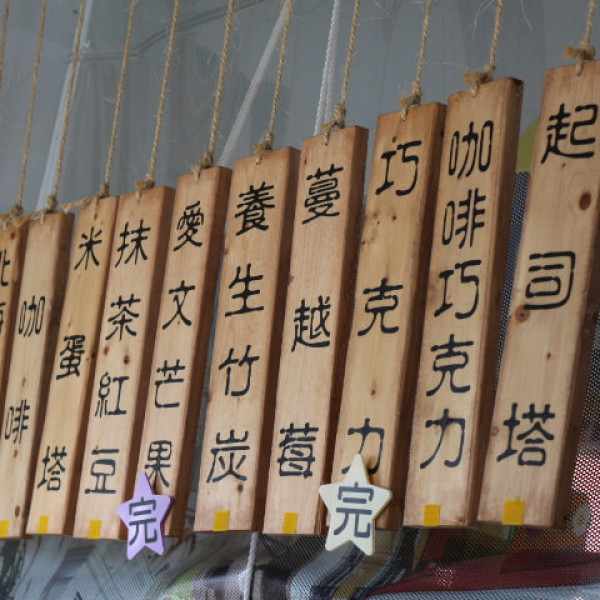 起司塔
咖啡巧克力
巧克力
完
蔓越莓
養生竹炭
愛文芒果
完
抹茶紅豆
米蛋塔
咖啡